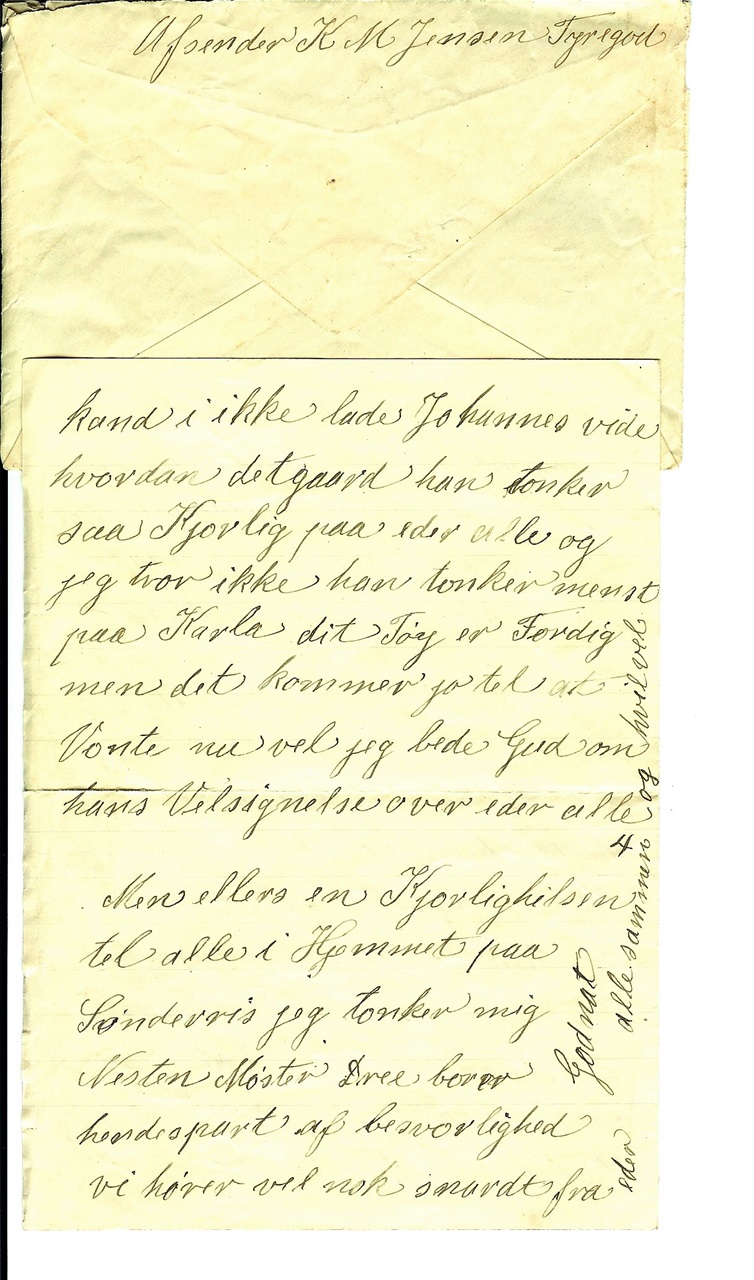 Afsender K M Jensen Tyregod
kand i ikke lade Johannes vide
hvordan det gaard han tonker
saa Kjorlig paa eder alle og
jeg tror ikke han tonker menst
paa Karla dit Töy er Fordig
men det kommer jo tel at
Vonte nu vel jeg bede Gud om
hans Velsignelse over eder alle
4
Men ellers en Kjorlighilsen
tel alle i Hjemmet paa
Sönderris jeg tonker mig
Nesten Möster Dree borer
hendespart af besvorlighed
vi hører vel nok snardt fra
eder
Godnat
alle sammen og hvil vel